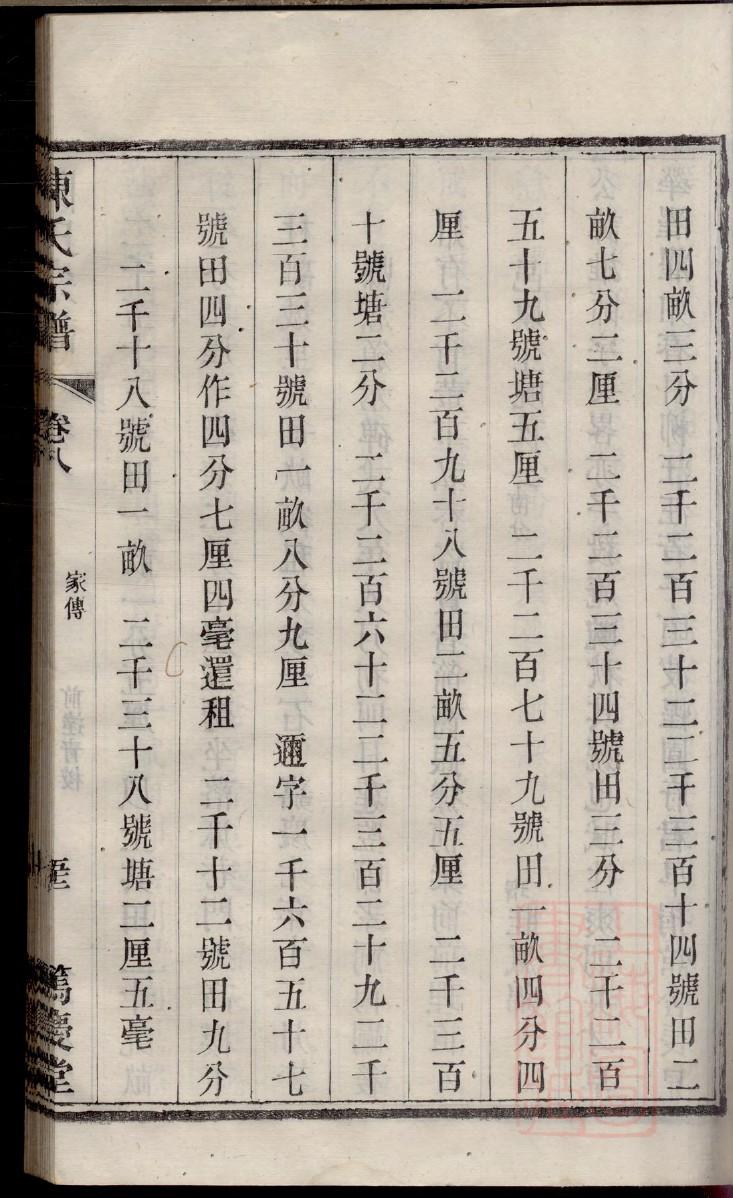 田四畝三分　二千二百三十二二千三百十四號田二
畝七分二厘　二千二百三十四號田三分　二千二百
五十九號塘五厘　二千二百七十九號田一畝四分四
厘　二千二百九十八號田二畝五分五厘　二千三百
十號塘二分　二千二百六十二二千三百二十九二千
三百三十號田一畝八分九厘　邇字一千六百五十七
號田四分作四分七厘四毫還租　二千十二號田九分
二千十八號田一畝　二千三十八號塘二厘五毫
陳氏宗譜　卷八　家傳　篤慶堂